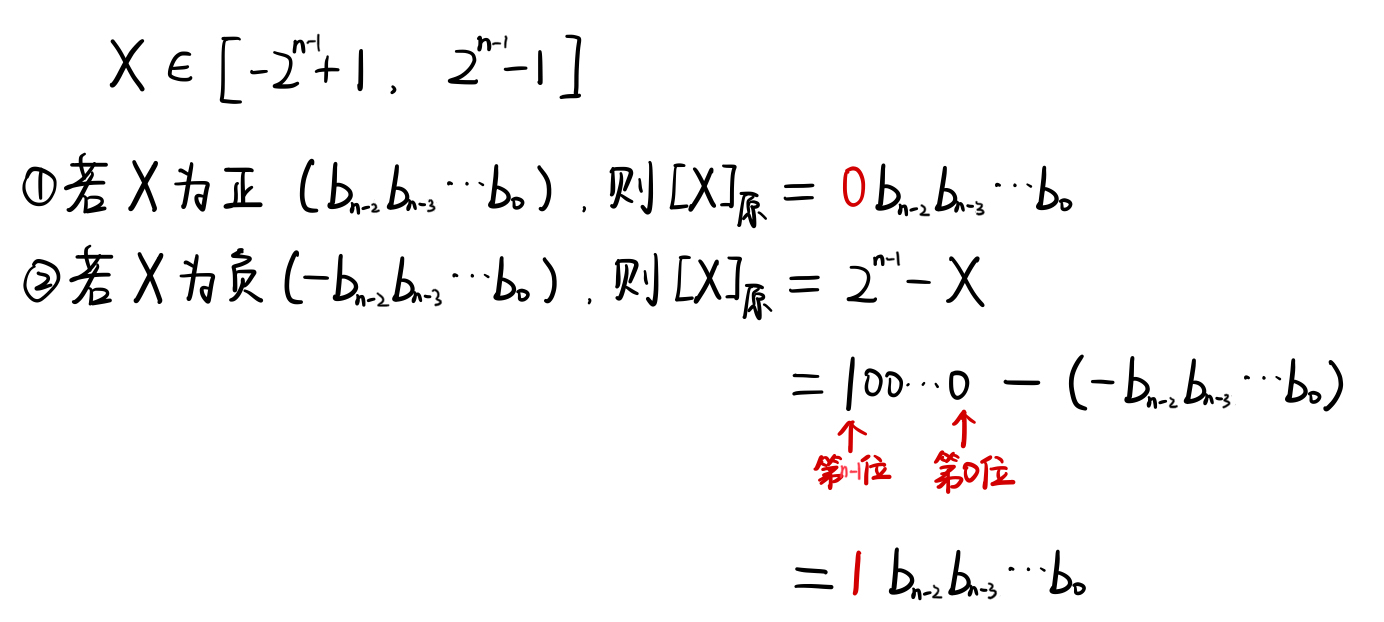 X ∈ [-2^{n-1}+1, 2^{n-1}-1]
①若X为正 (b_{n-2}b_{n-3}…b_0), 则[X]_原 = 0b_{n-2}b_{n-3}…b_0
②若X为负(-b_{n-2}b_{n-3}…b_0), 则[X]_原 = 2^{n-1}-X
= 100…0 - (-b_{n-2}b_{n-3}…b_0)
↑ ↑
第n-1位 第0位
= 1 b_{n-2}b_{n-3}…b_0